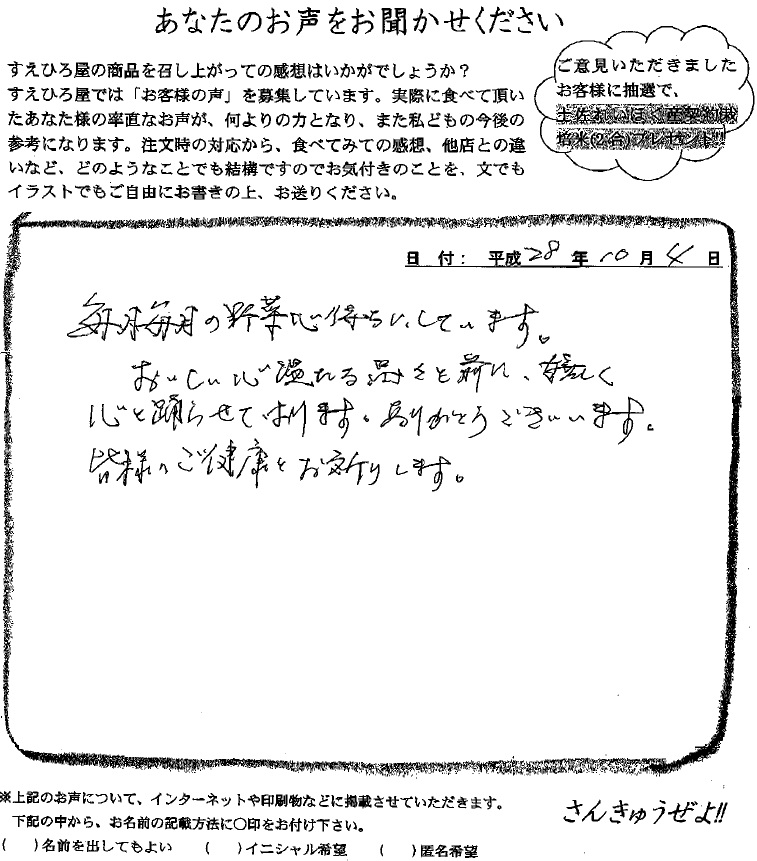 あなたのお声をお聞かせください
すえひろ屋の商品を召し上がっての感想はいかがでしょうか？
すえひろ屋では「お客様の声」を募集しています。実際に食べて頂い
たあなた様の率直なお声が、何よりの力となり、また私どもの今後の
参考になります。注文時の対応から、食べてみての感想、他店との違
いなど、どのようなことでも結構ですのでお気付きのことを、文でも
イラストでもご自由にお書きの上、お送りください。
ご意見いただきました
お客様に抽選で、
土佐れいほく
米(2合)プレゼント!!
日 付： 平成 28 年 10 月 4 日
毎月毎月の野菜心待ちにしています。
おいしい心溢れる品々と
心を踊らせております。ありがとうございます。
皆様のご健康をお祈りします。
※上記のお声について、インターネットや印刷物などに掲載させていただきます。
下記の中から、お名前の記載方法に〇印をお付け下さい。
(　)名前を出してもよい　(　)イニシャル希望　(　)匿名希望
さんきゅうぜよ!!